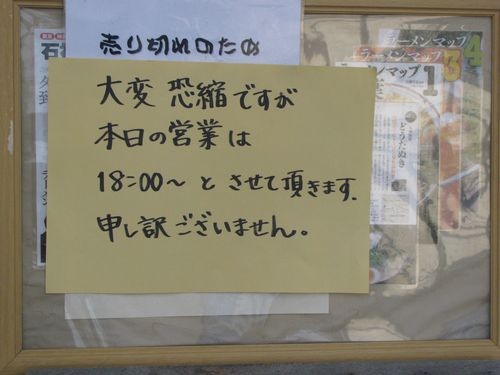 売り切れのため
大変 恐縮ですが
本日の営業は
18:00～ と させて頂きます.
申し訳ございません。
ラーメンマップ 4
ラーメンマップ 3
メンマップ 1
どうたぬき